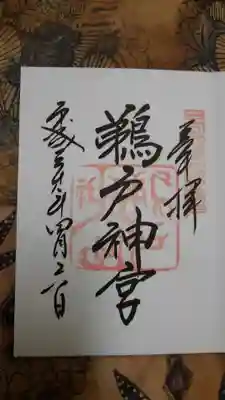 奉拝
鵜戸神宮
平成二十八年四月二日